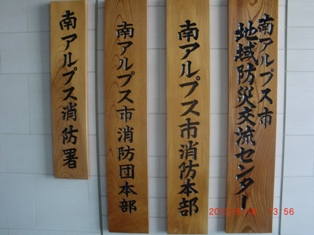 南アルプス市
地域防災交流センター
南アルプス市消防本部
南アルプス市消防団本部
南アルプス消防署